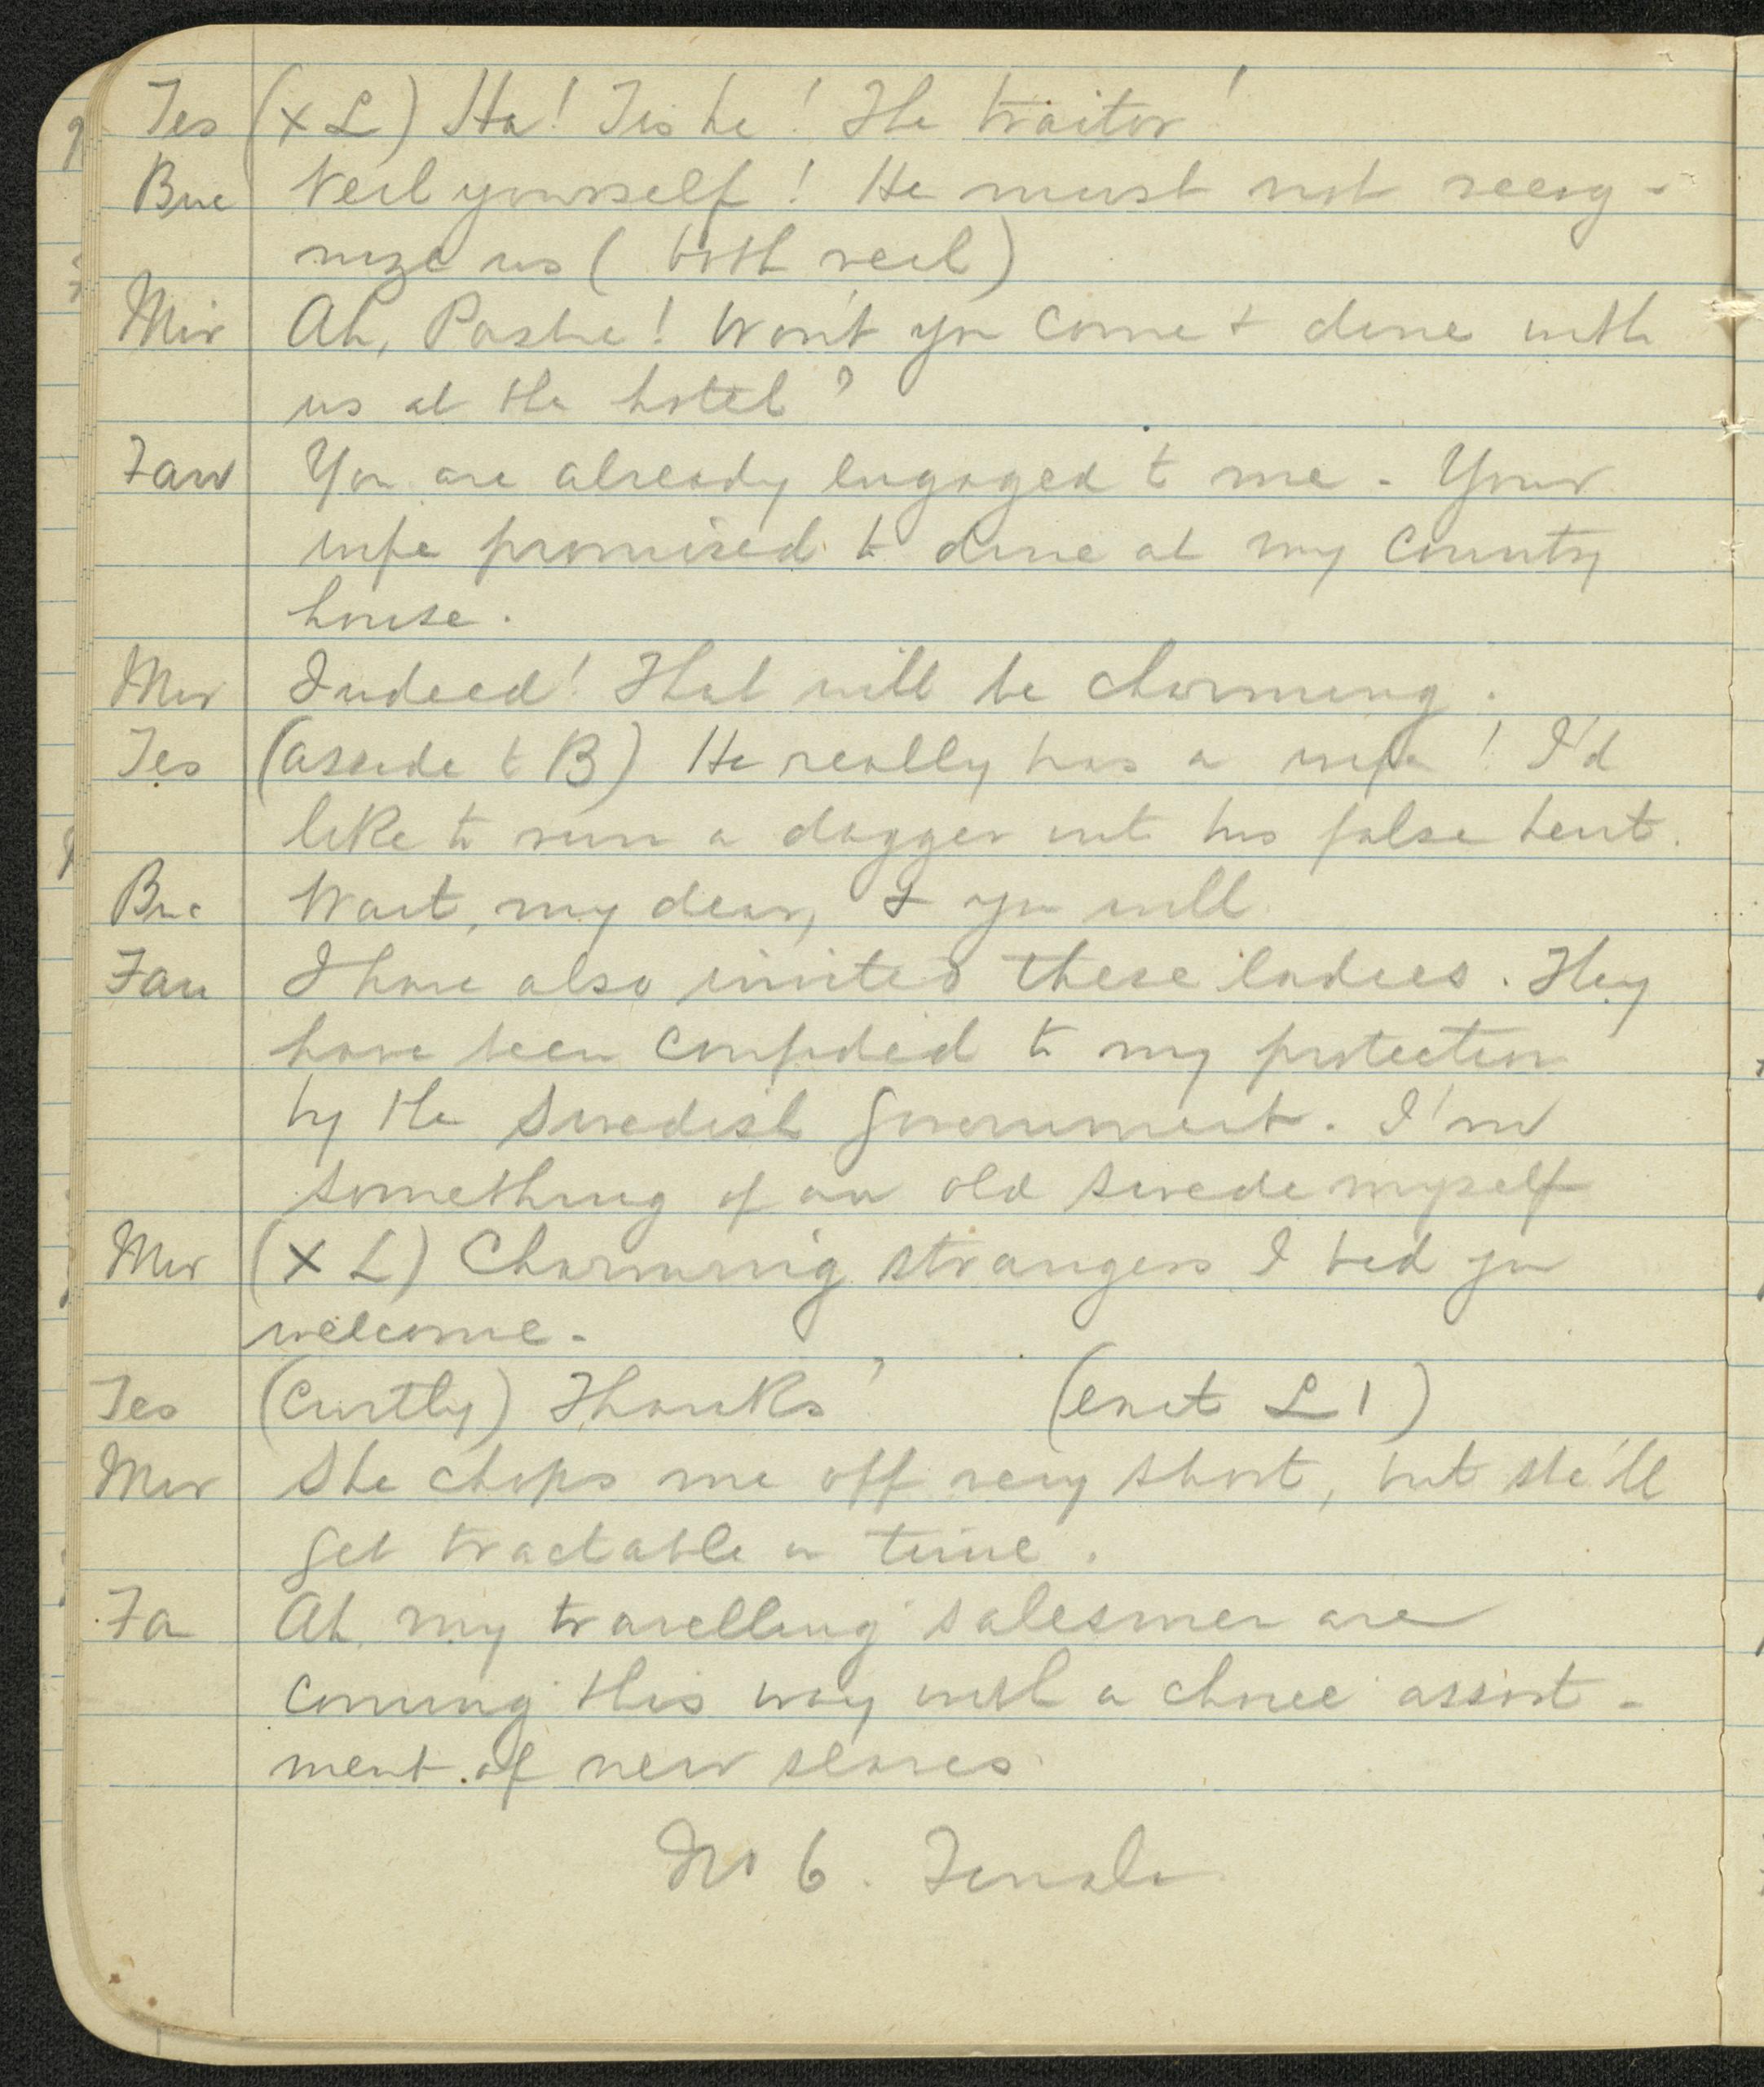 Tes (x L) Ha! Tis he! The traitor!
Buc Veil yourself! He must not recog-
nize us (both veil)
Mir Ah, Pasha! Won't you come & dine with
us at the hotel?
Fan You are already engaged to me. Your
wife promised to dine at my country
house.
Mir Indeed! That will be charming.
Tes (asside to B) He really has a wife! I'd
like to run a dagger into his false heart.
Buc Wait, my dear, & you will
Fan I have also invited these ladies. They
have been confided to my protection
by the Swedish Government. I'm
something of an old Swede myself
Mir (X L) Charming strangers I bid you
welcome.
Tes (Curtly) Thanks! (exit L 1)
Mir She chops me off very short, but she'll
get tractable in time.
Fa Ah my travelling salesmen are
coming this way with a choice assort-
ment of new slaves
No 6. Finale